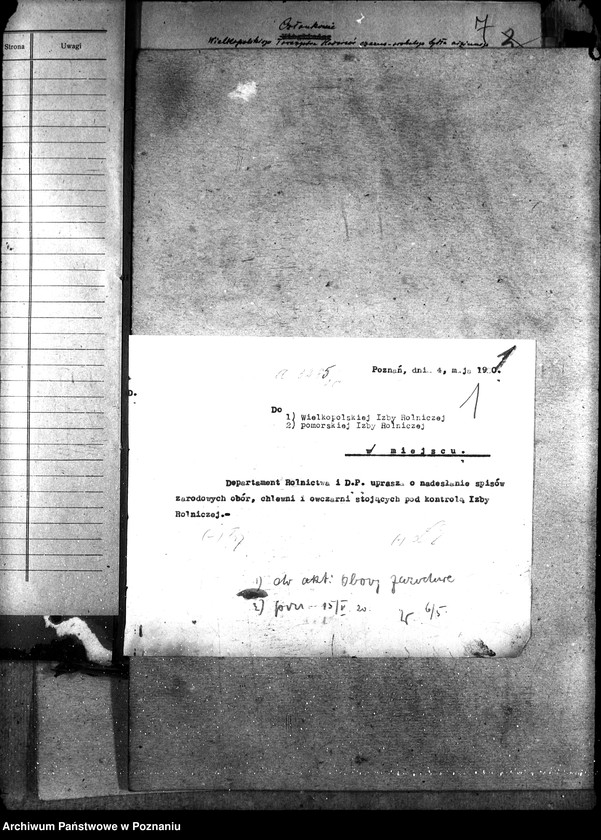 Strona
Uwagi
Członkowie
7
2
Wielkopolskiego Towarzystwa Hodowców czarno-srokatego bydła nizinnego
Poznań, dni. 4, m.ja 1920.
1
1
D.
Do
1) Wielkopolskiej Izby Rolniczej
2) Pomorskiej Izby Rolniczej
w miejscu.
Departament Rolnictwa i D.P. uprasz. o nadesłanie spisów
zarodowych obór, chlewni i owczarni stojących pod kontrolą Izby
Rolniczej.-
1) do akt: Obory zarodowe
2) 15/V 20.
6/5.
Archiwum Państwowe w Poznaniu